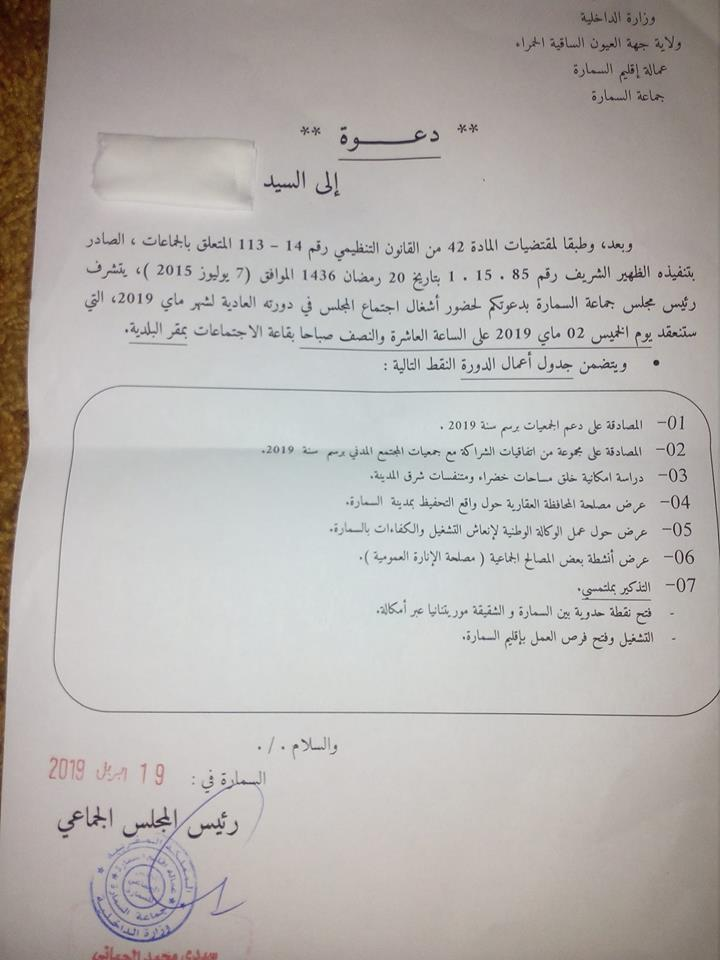 وزارة الداخلية
ولاية جهة العيون الساقية الحمراء
عمالة إقليم السمارة
جماعة السمارة
** دعـــــوة **
إلى السيد
وبعد، وطبقا لمقتضيات المادة 42 من القانون التنظيمي رقم 14 - 113 المتعلق بالجماعات ، الصادر
بتنفيذه الظهير الشريف رقم 85 . 15 . 1 بتاريخ 20 رمضان 1436 الموافق (7 يوليوز 2015 )، يتشرف
رئيس مجلس جماعة السمارة بدعوتكم لحضور أشغال اجتماع المجلس في دورته العادية لشهر ماي 2019، التي
ستنعقد يوم الخميس 02 ماي 2019 على الساعة العاشرة والنصف صباحا بقاعة الاجتماعات بمقر البلدية.
• ويتضمن جدول أعمال الدورة النقط التالية :
01- المصادقة على دعم الجمعيات برسم سنة 2019 .
02- المصادقة على مجموعة من اتفاقيات الشراكة مع جمعيات المجتمع المدني برسم سنة 2019.
03- دراسة امكانية خلق مساحات خضراء ومتنفسات شرق المدينة.
04- عرض مصلحة المحافظة العقارية حول واقع التحفيظ بمدينة السمارة.
05- عرض حول عمل الوكالة الوطنية لإنعاش التشغيل والكفاءات بالسمارة.
06- عرض أنشطة بعض المصالح الجماعية ( مصلحة الإنارة العمومية ).
07- التذكير بملتمسي.
- فتح نقطة حدودية بين السمارة و الشقيقة موريتنانيا عبر أمكالة.
- التشغيل وفتح فرص العمل بإقليم السمارة.
والسلام ./.
السمارة في : 19 ابريل 2019
رئيس المجلس الجماعي
المملكة المغربية
جماعة السمارة
وزارة الداخلية
سيدي محمد الجماني